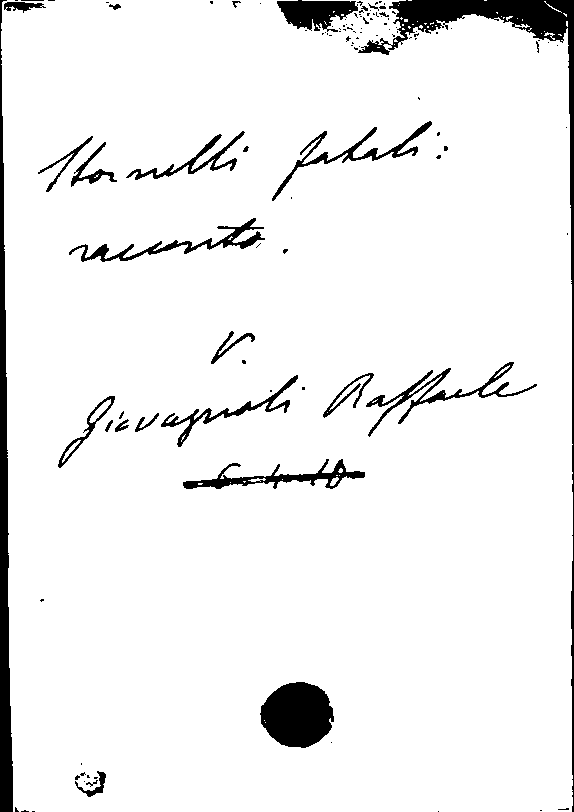 Stornelli fatali:
racconto.
V.
Giovagnoli Raffaele
6.4.10